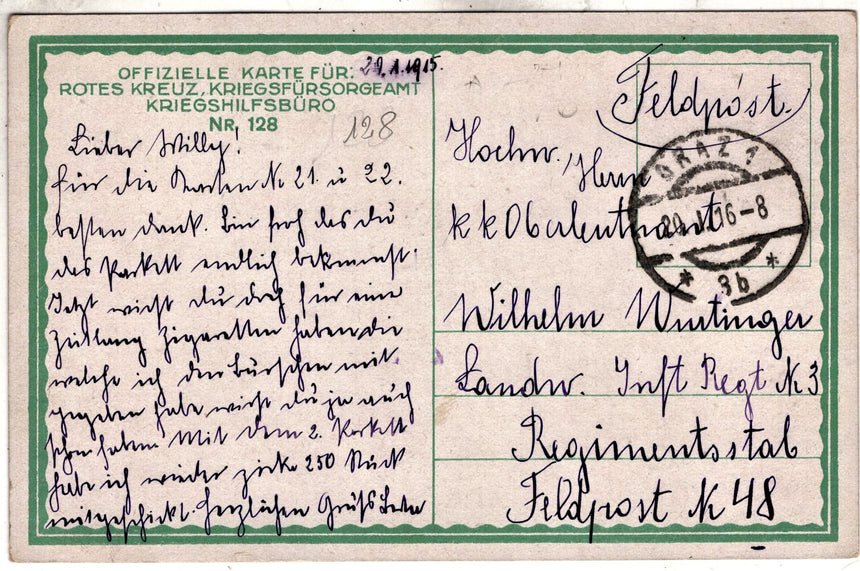 OFFIZIELLE KARTE FÜR:
ROTES KREUZ, KRIEGSFÜRSORGEAMT
KRIEGSHILFSBÜRO
NR. 128
29.1.1915.
128
Lieber Willy!
für die Karten No 21. u 22.
besten dank. Bin froh das du
das Packett endlich bekommst.
Jetzt wirst du doch für eine
Zeitlang Zigaretten haben die
welche ich den Burschen mit
gegeben habe wirst du ja auch
schon haben. Mit dem 2. Packett
habe ich wieder zirka 250 Stück
mitgeschickt. Herzlichen Gruß
Feldpost.
Hochw. Herrn
k k Oberleutnant
Wilhelm Wurtinger
Landw. Inft Regt No 3
Regimentsstab
Feldpost No 48
GRAZ 1
20. I. 16-8
* 3b *